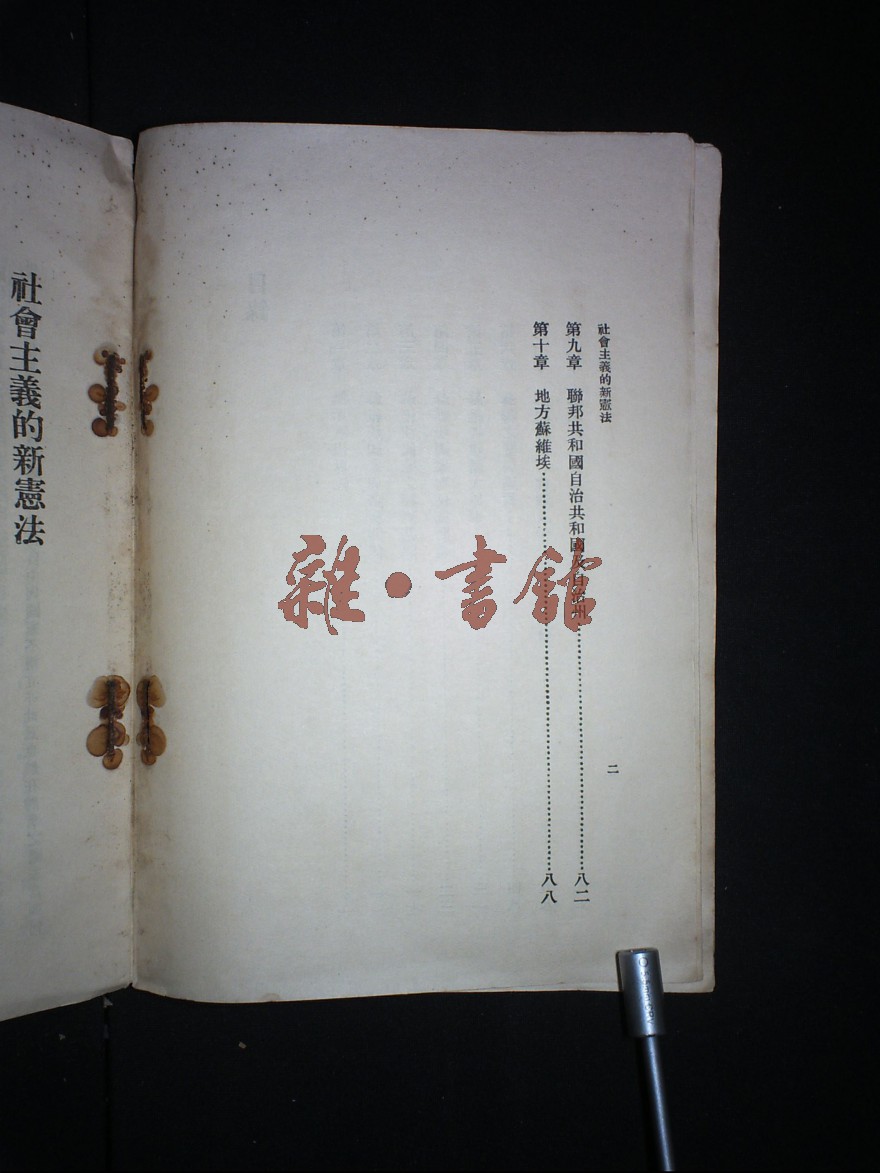 社會主義的新憲法
二
第九章 聯邦共和國自治共和國及自治州……八二
第十章 地方蘇維埃……八八
社會主義的新憲法
雜·書館